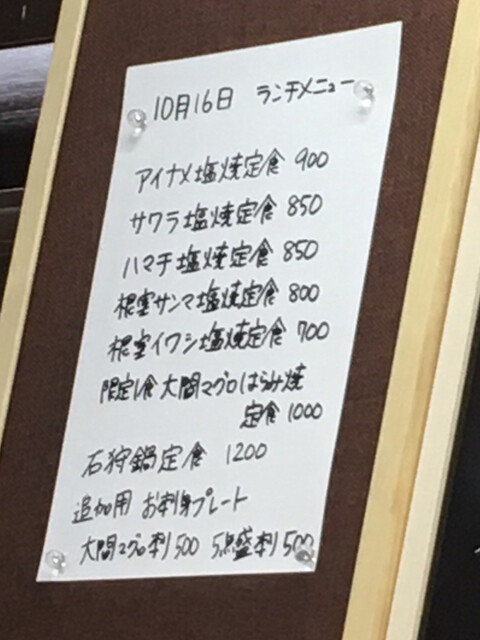 10月16日 ランチメニュー
アイナメ塩焼定食 900
サワラ塩焼定食 850
ハマチ塩焼定食 850
根室サンマ塩焼定食 800
根室イワシ塩焼定食 700
限定1食 大間マグロはらみ焼
定食 1000
石狩鍋定食 1200
追加用 お刺身プレート
大間マグロ刺500 5点盛刺500